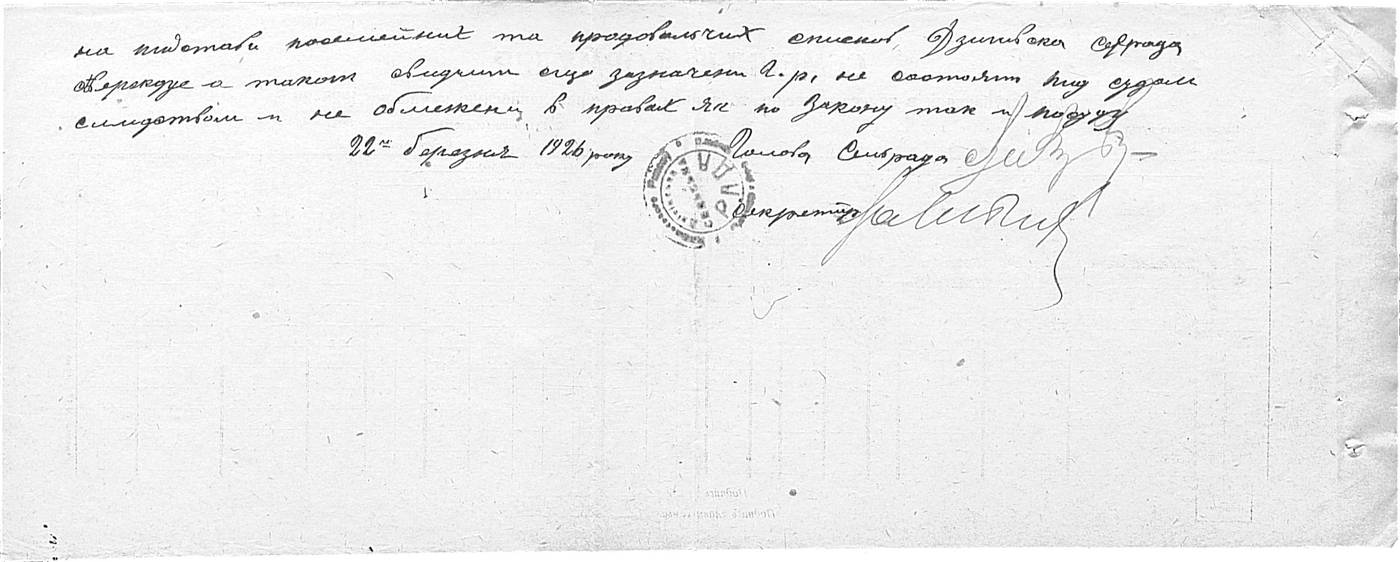 на пидстави посемейних та продовольчих списков Дзигивска сельрада
стверждуе а також свидчит що зазначени г.р. не состоят пид судом
слидством и не обмежени в правах як по закону так и по суду
22го березня 1926 року Голова Сельрада
Секретар
РАДА